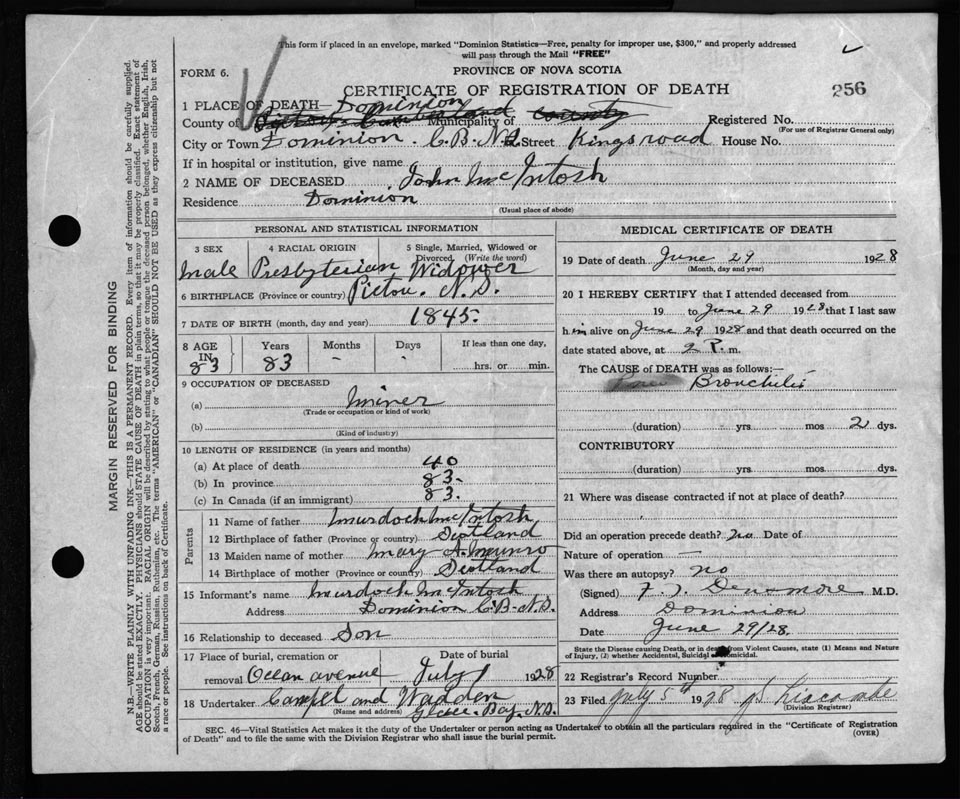 This form if placed in an envelope, marked "Dominion Statistics—Free, penalty for improper use, $300," and properly addressed
will pass through the Mail "FREE"
FORM 6.
PROVINCE OF NOVA SCOTIA
CERTIFICATE OF REGISTRATION OF DEATH
256
1 PLACE OF DEATH— Dominion
County of Cumberland Municipality of county Registered No.
(For use of Registrar General only)
City or Town Dominion. C.B. N.S. Street Kings road House No.
If in hospital or institution, give name
2 NAME OF DECEASED John McIntosh
Residence Dominion
(Usual place of abode)
PERSONAL AND STATISTICAL INFORMATION
3 SEX 4 RACIAL ORIGIN 5 Single, Married, Widowed or
Divorced (Write the word)
male Presbyterian Widower
6 BIRTHPLACE (Province or country) Pictou. N.S.
7 DATE OF BIRTH (month, day and year) 1845.
8 AGE Years Months Days If less than one day,
IN
83 83 - - hrs. or min.
9 OCCUPATION OF DECEASED
(a) miner
(Trade or occupation or kind of work)
(b)
(Kind of industry)
10 LENGTH OF RESIDENCE (in years and months)
(a) At place of death 40
(b) In province 83-
(c) In Canada (if an immigrant) 83.
Parents
11 Name of father Murdoch McIntosh
12 Birthplace of father (Province or country) Scotland
13 Maiden name of mother Mary A. Munro
14 Birthplace of mother (Province or country) Scotland
15 Informant's name Murdoch McIntosh
Address Dominion C.B- N.S.
16 Relationship to deceased Son
17 Place of burial, cremation or Date of burial
removal Ocean avenue July 1 1928
18 Undertaker Campel and Wadden
(Name and address) Glace Bay, N.S.
MEDICAL CERTIFICATE OF DEATH
19 Date of death June 29 1928
(Month, day and year)
20 I HEREBY CERTIFY that I attended deceased from
19 to June 29 1928 that I last saw
him alive on June 29 1928 and that death occurred on
the date stated above, at 2 P. m.
The CAUSE of DEATH was as follows:—
Bronchitis
(duration) yrs mos 2 dys.
CONTRIBUTORY
(duration) yrs. mos. dys.
21 Where was disease contracted if not at place of death?
Did an operation precede death? no Date of
Nature of operation —
Was there an autopsy? no
(Signed) F. J. Densmore M.D.
Address Dominion
Date June 29/28.
State the Disease causing Death, or in death from Violent Causes, state (1) Means and
Nature of Injury, (2) whether Accidental, Suicidal or Homicidal.
22 Registrar's Record Number
23 Filed July 5th 1928 Liscombe
(Division Registrar)
SEC. 46—Vital Statistics Act makes it the duty of the Undertaker or person acting as Undertaker to obtain all the particulars required in the "Certificate of Registration
of Death" and to file the same with the Division Registrar who shall issue the burial permit.
(OVER)
MARGIN RESERVED FOR BINDING
N.B.—WRITE PLAINLY WITH UNFADING INK—THIS IS A PERMANENT RECORD. Every item of information should be carefully supplied.
AGE should be stated EXACTLY. PHYSICIANS should STATE CAUSE OF DEATH in plain terms, so that it may be properly classified. Exact statement of
OCCUPATION is very important. RACIAL ORIGIN will be described by stating to what people or tongue the deceased person belonged, whether English, Irish,
Scotch, French, German, Russian, Ruthenian, etc. The terms "AMERICAN" or "CANADIAN" SHOULD NOT BE USED as they express citizenship but not
a race or people. See instructions on back of Certificate.